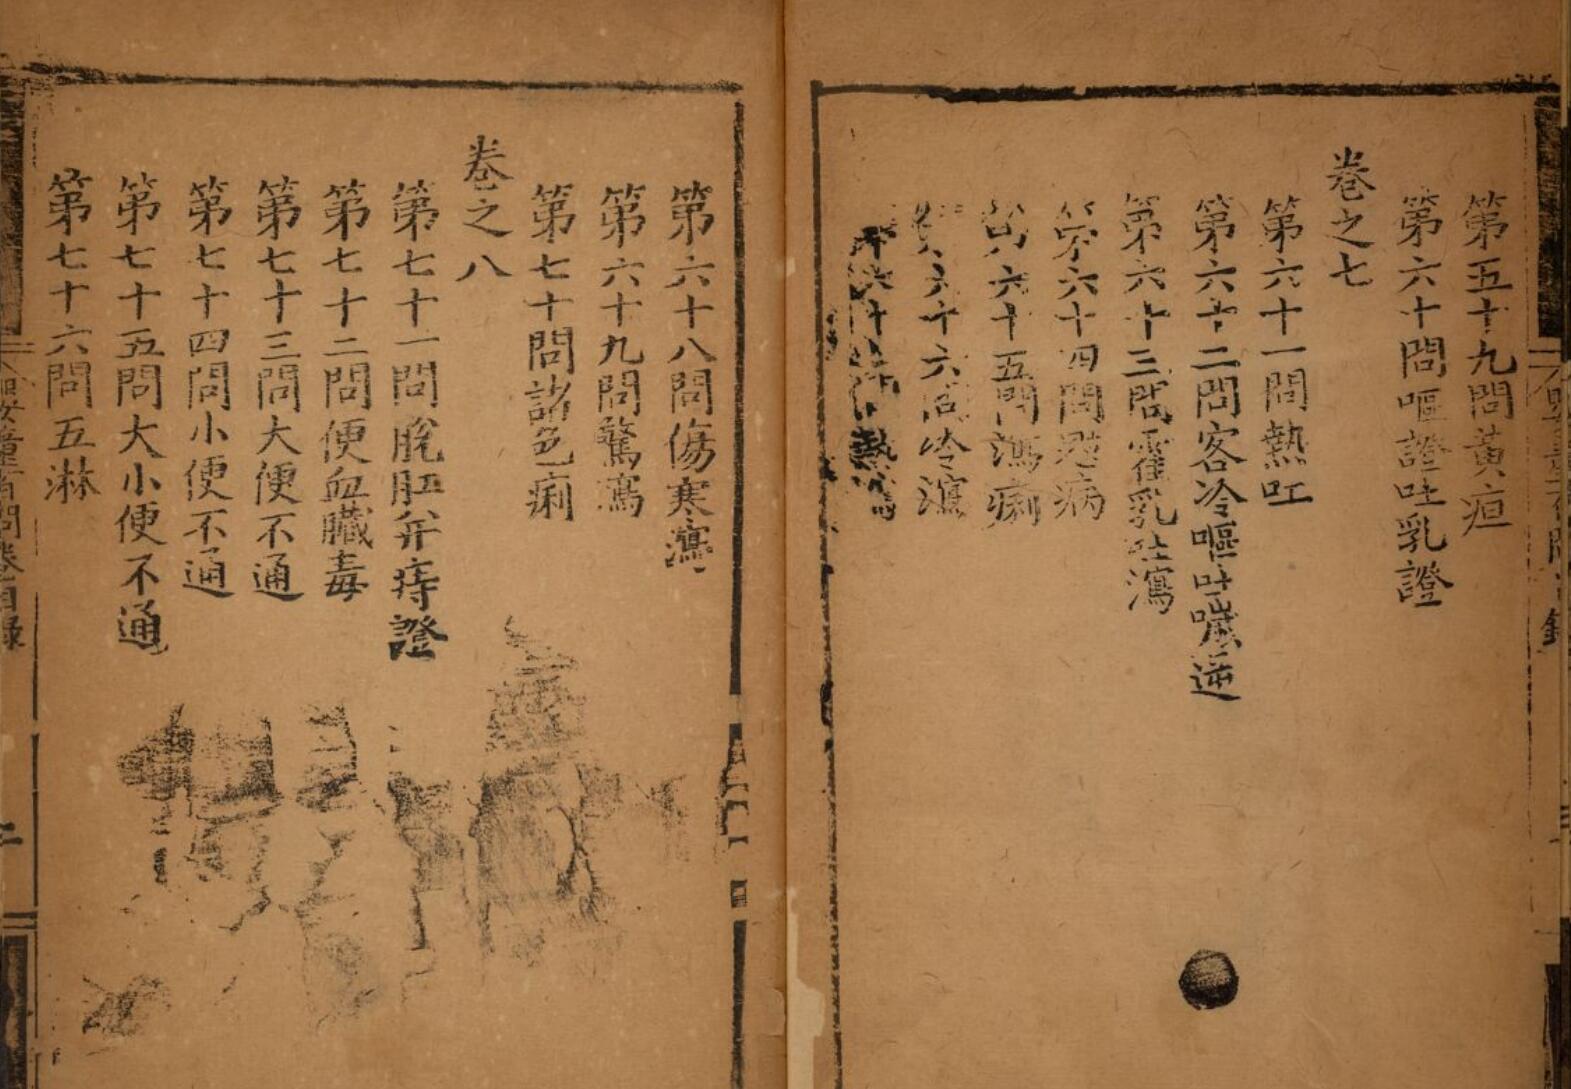 第五十九問黃疸
第六十問嘔證吐乳證
卷之七
第六十一問熱吐
第六十二問客冷嘔吐噦逆
第六十三問霍亂吐瀉
第六十四問
第六十五問瀉痢
第六十六問冷瀉
熱瀉
第六十八問傷寒瀉
第六十九問驚瀉
第七十問諸色痢
卷之八
第七十一問脫肛并痔證
第七十二問便血臟毒
第七十三問大便不通
第七十四問小便不通
第七十五問大小便不通
第七十六問五淋
嬰童百問卷目錄